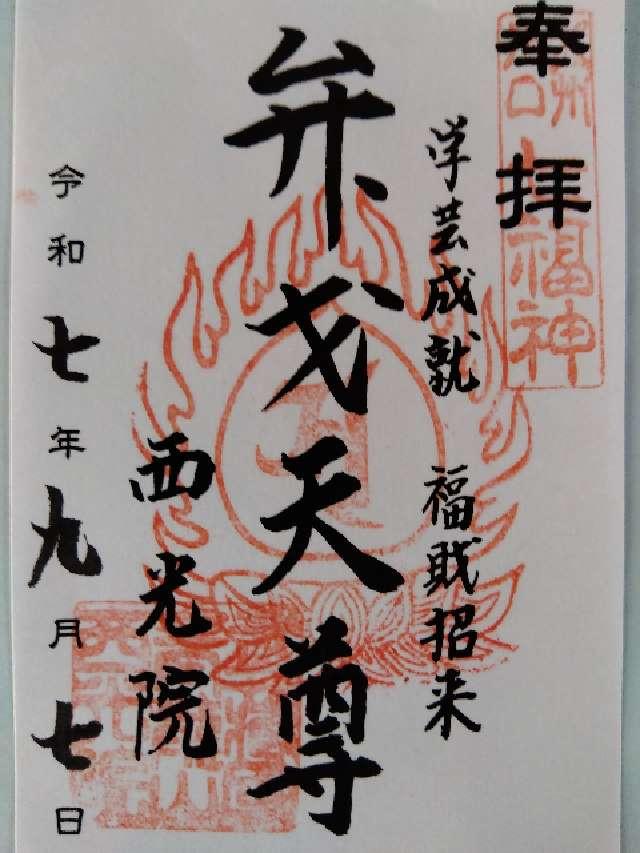 奉拝
福神
学芸成就 福戝招来
弁戈天尊
西光院
令和七年九月七日